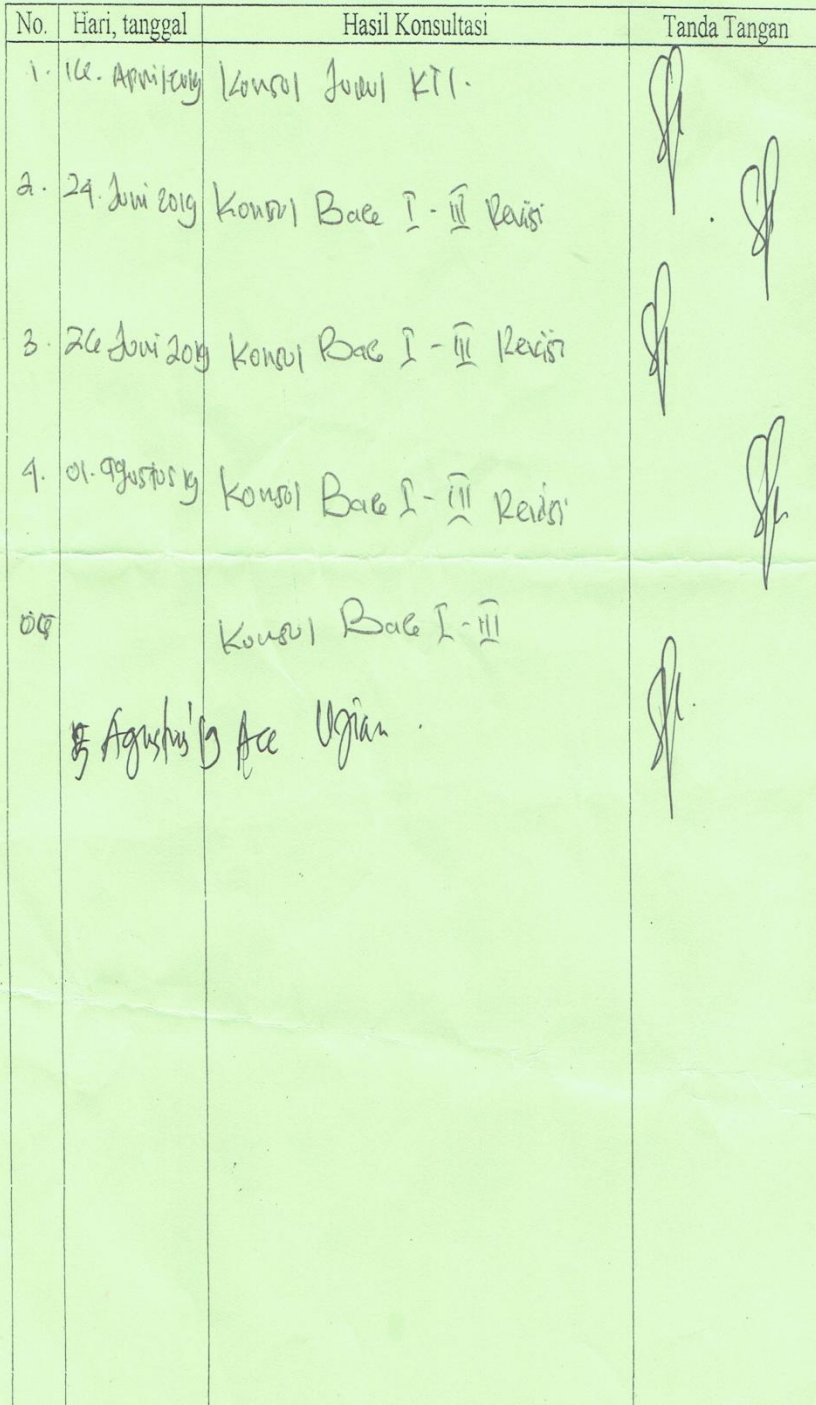 No. Hari, tanggal Hasil Konsultasi Tanda Tangan
1. 16. April 2019 Konsul Judul KTI.
2. 24. Juni 2019 Konsul Bab I - III Revisi
3. 26 Juni 2019 Konsul Bab I - III Revisi
4. 01. Agustus 19 Konsul Bab I - III Revisi
Konsul Bab I - III
5 Agustus'19 Acc Ujian.